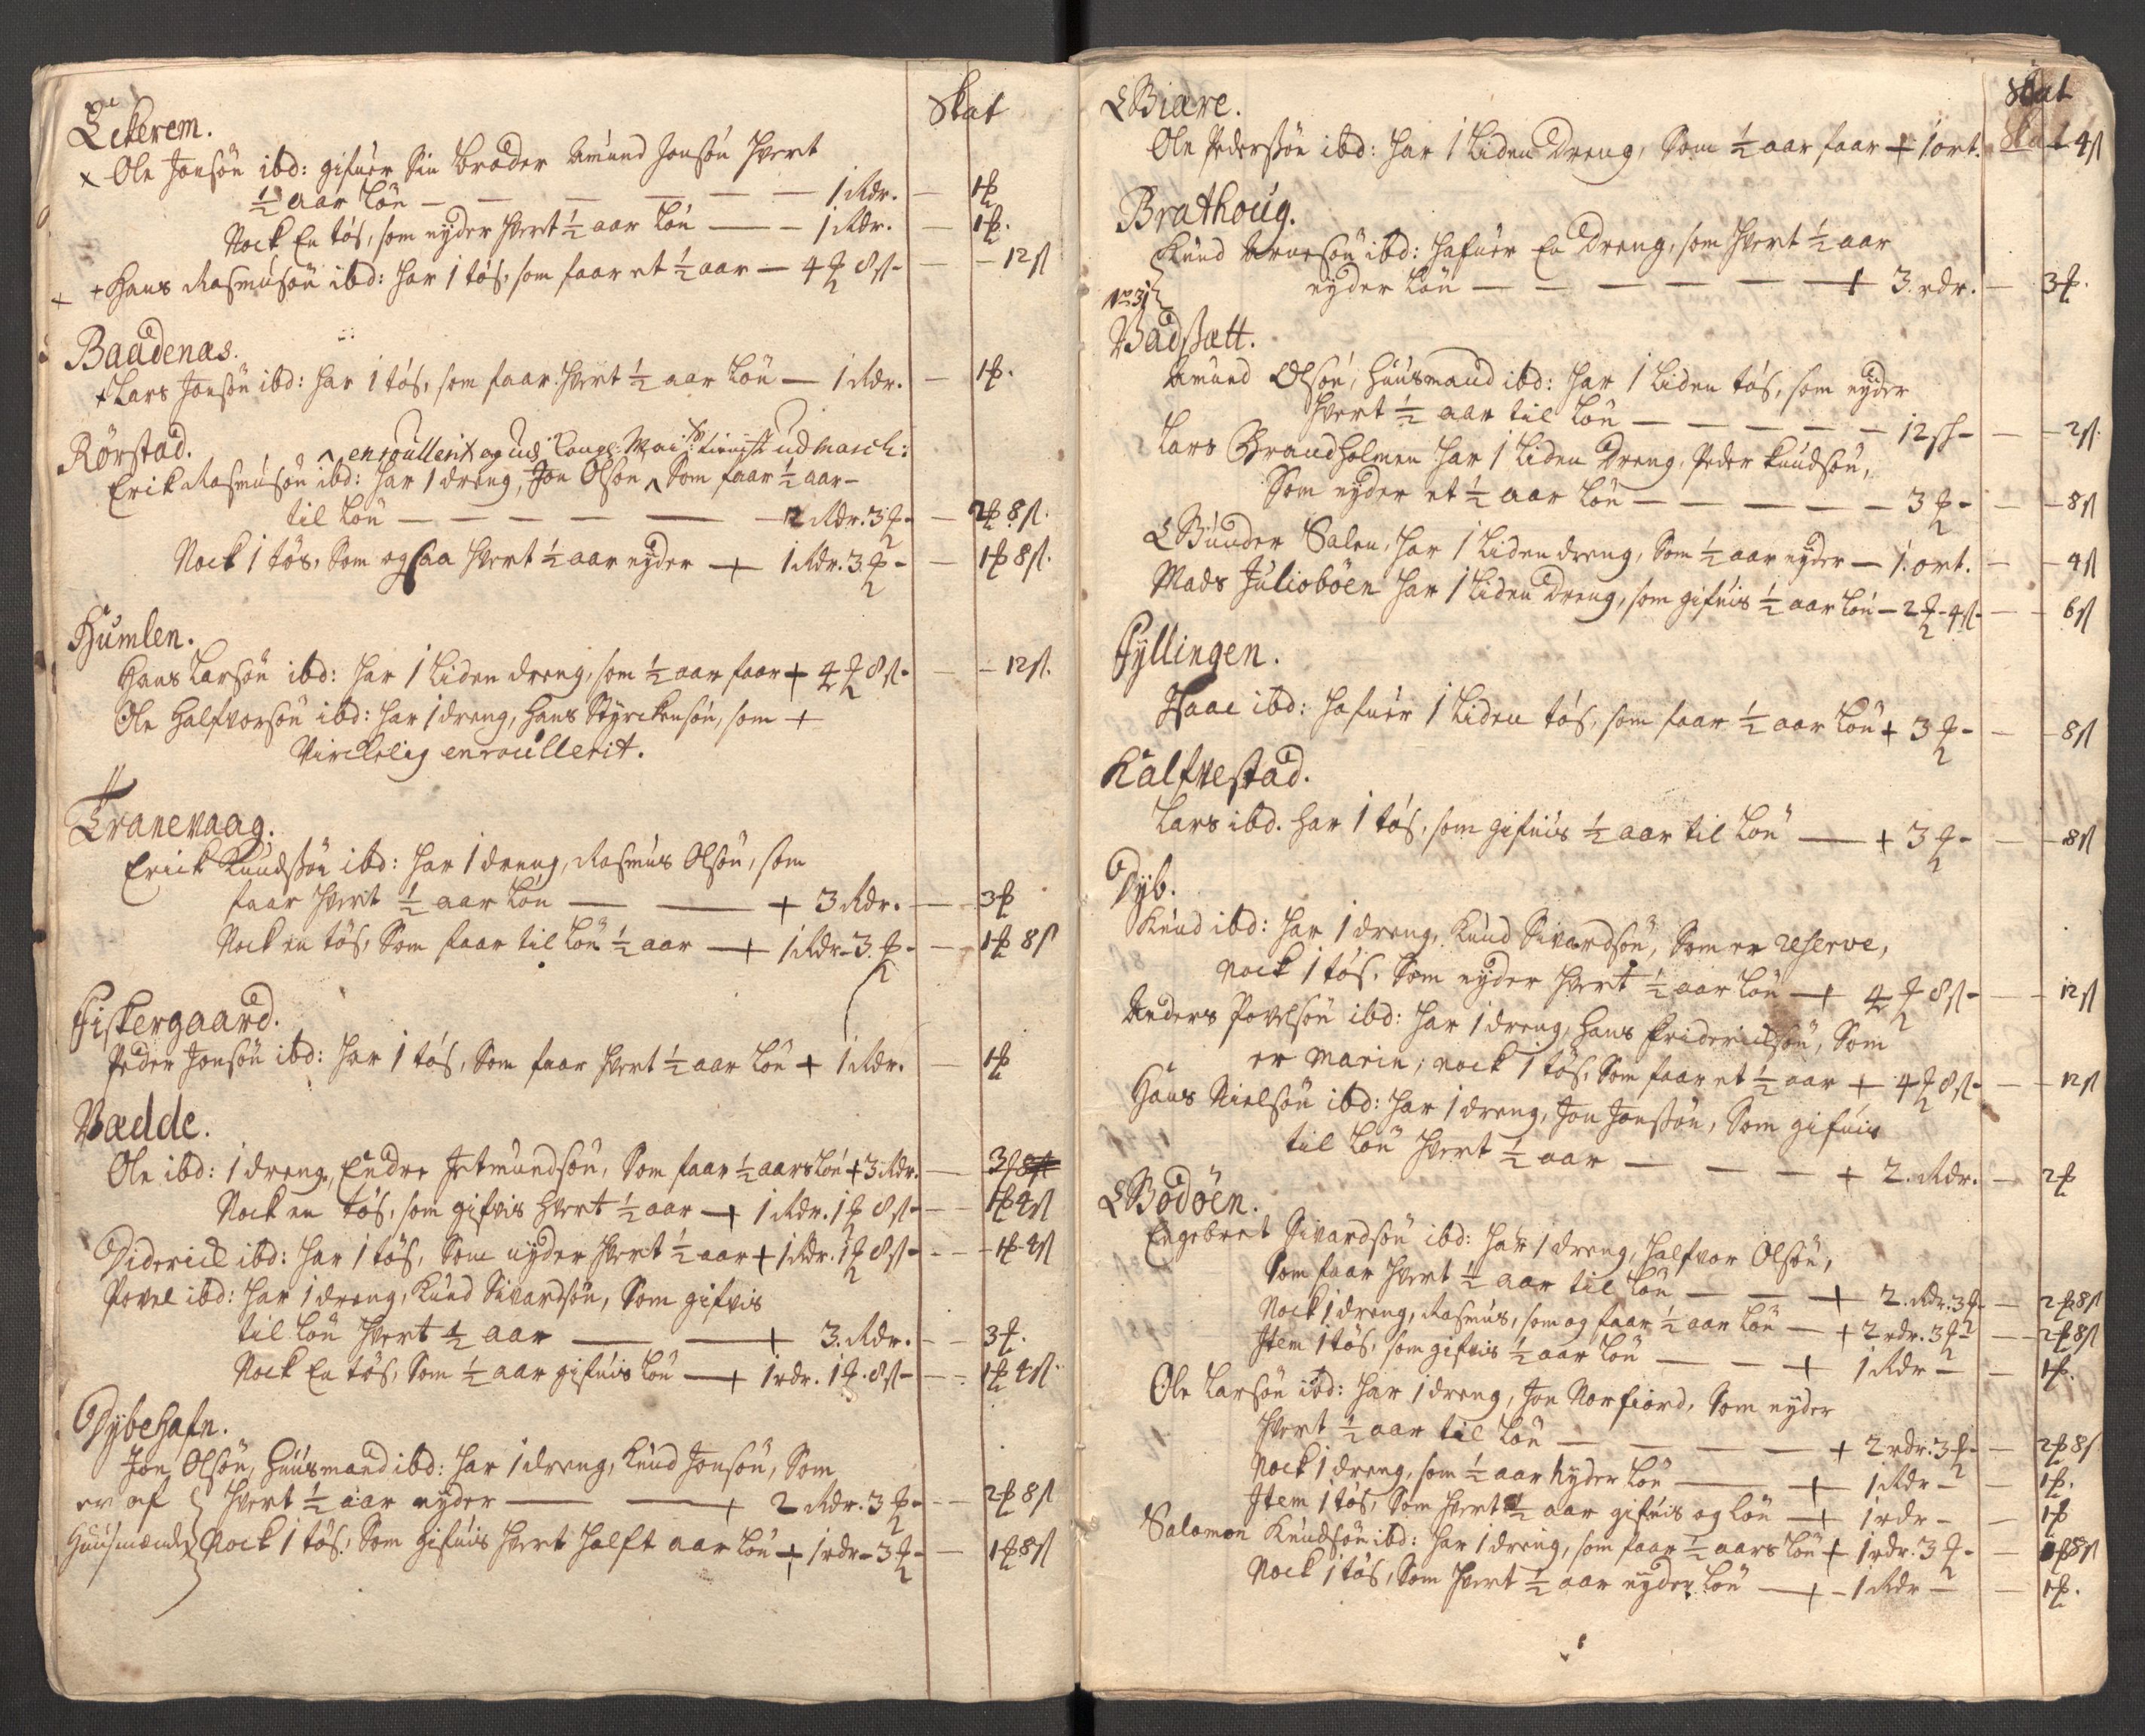 Skat
Eckerem.
x Ole Jonsön ibd: gifuer Sin broder Amund Jonsön Hvert
½ aar Lön — — — — — 1 Rdr. — 1 ℔
Nock En tös, som nyder Hvert ½ aar Lön — — 1 Rdr. — 1 ℔.
+ + Hans Rasmusön ibd: har 1 tös, som faar et ½ aar — 4 ℔ 8 s — — 12 s
Baadenæs.
+ Lars Jonsön ibd: har 1 tös, som faar Hvert ½ aar Lön — 1 Rdr. — 1 ℔.
Rörstad.
enroullerit og udi Kongl: Mai: tienist udmarch:
Erik Rasmusön ibd: har 1 dreng, Jon Olson ^ Som faar ½ aar –
til Lön — — — — — — 2 Rdr. 3 ℔ – — 2 ℔ 8 s.
Nock 1 tös, Som ogsaa Hvert ½ aar nyder + 1 Rdr. 3 ℔ – — 1 ℔ 8 s.
Humlen.
Hans Larsön ibd: har 1 Liden dreng, som ½ aar faar + 4 ℔ 8 s – — – 12 s.
Ole Halfvorsön ibd: har 1 dreng, Hans Styrckersön, som +
Virckelig enroullerit.
Tranevaag.
Erick Knudssön ibd: har 1 dreng, Rasmus Olsön, som
faar Hvert ½ aar Lön — — + 3 Rdr. — 3 ℔
Nock en tös, Som faar til Lön ½ aar — + 1 Rdr – 3 ℔ – — 1 ℔ 8 s
Fiskergaard.
Peder Jonsön ibd: har 1 tös, Som faar Hvert ½ aar Lön + 1 Rdr. — 1 ℔
Vædde.
Ole ibd: 1 dreng, Endre Jetmundsön, Som faar ½ aars Lön + 3 Rdr. — 3 ℔
Nock en tös, som gifvis Hvert ½ aar — + 1 Rdr. 1 ℔ 8 s – — 1 ℔ 4 s
Diderich ibd: har 1 tös, Som nyder Hvert ½ aar + 1 Rdr. 1 ℔ 8 s – — 1 ℔ 4 s
Povel ibd: har 1 dreng, Knud Sivardsön, Som gifvis
til Lön Hvert ½ aar — — + 3. Rdr. — 3 ℔.
Nock En tös, Som ½ aar gifuis Lön — + 1 rdr. 1 ℔. 8 s – — 1 ℔ 4 s.
Dybehafn.
Jon Olsön, Huusmand ibd: har 1 dreng, Knud Jonsön, Som
er af } Hvert ½ aar nyder — — + 2 Rdr. 3 ℔ – — 2 ℔ 8 s
Huusmænder } Nock 1 tös, Som Gifuis Hvert Halft aar Lön + 1 rdr – 3 ℔ – — 1 ℔ 8 s
Skat
Biære.
Ole Pederssön ibd: har 1 Liden Dreng, Som ½ aar faar + 1 ort. Skat 4 s
Brathoug.
Knud Arnesön ibd: hafuer En Dreng, som Hvert ½ aar
nyder Lön — — — — — + 3. rdr. — 3 ℔.
No 31
Vadssætt.
Amund Olsön, Huusmand ibd: har 1 Liden tös, som nyder
Hvert ½ aar til Lön — — — — — 12 sh – — – 2 s.
Lars Brandholmen har 1 Liden Dreng, Peder Knudsön,
Som nyder et ½ aar Lön — — — — — 3 ℔ – — – 8 s
Bunder Salen, har 1 Liden dreng, Som ½ aar nyder — 1. ort. — – 4 s
Mads Juliobøen har 1 Liden Dreng, som gifuis ½ aar Lön – 2 ℔ – 4 s – — 6 s
Fyllingen.
Isaac ibd: hafuer 1 Liden tös, som faar ½ aar Lön + 3 ℔ – — – 8 s
Kalfvestad.
Lars ibd. har 1 tös, som gifuis ½ aar til Lön — + 3 ℔ – — – 8 s
Dyb.
Knud ibd: har 1 dreng, Knud Sivardsön, Som er reserve,
nock 1 tös, Som nyder Hvert ½ aar Lön — + 4 ℔ 8 s – — – 12 s
Anders Povelsön ibd: har 1 dreng, Hans Friderichsön, Som
er Marin; nock 1 tös, Som faar et ½ aar + 4 ℔ 8 s – — – 12 s
Hans Nielsön ibd: har 1 dreng, Jon Jonssön, Som gifuis
til Lön Hvert ½ aar — — — + 2. Rdr. — 2 ℔
Bodöen.
Engebret Sivardsön ibd: har 1 dreng, Halfvor Olsön,
Som faar Hvert ½ aar til Lön — — + 2. Rdr. 3 ℔ — 2 ℔ 8 s
Nock 1 dreng, Rasmus, som og faar ½ aar Lön — + 2 rdr. 3 ℔ — 2 ℔ 8 s
Item 1 tös, som gifuis ½ aar Lön — — + 1 Rdr – — 1 ℔.
Ole Larsön ibd: har 1 dreng, Jon Norfiord, Som nyder
Hvert ½ aar til Lön — — — — + 2 rdr. 3 ℔ – — 2 ℔ 8 s
Nock 1 dreng, som ½ aar nyder Lön — — + 1 Rdr – — 1 ℔.
Item 1 tös, Som Hvert ½ aar gifuis og Lön — + 1 rdr – — 1 ℔
Salomon Knudsön ibd: har 1 dreng, som faar ½ aars Lön + 1 rdr. 3 ℔ – — 1 ℔ 8 s
Nock 1 tös, Som Hvert ½ aar nyder Lön — + – 1 Rdr — — 1 ℔.